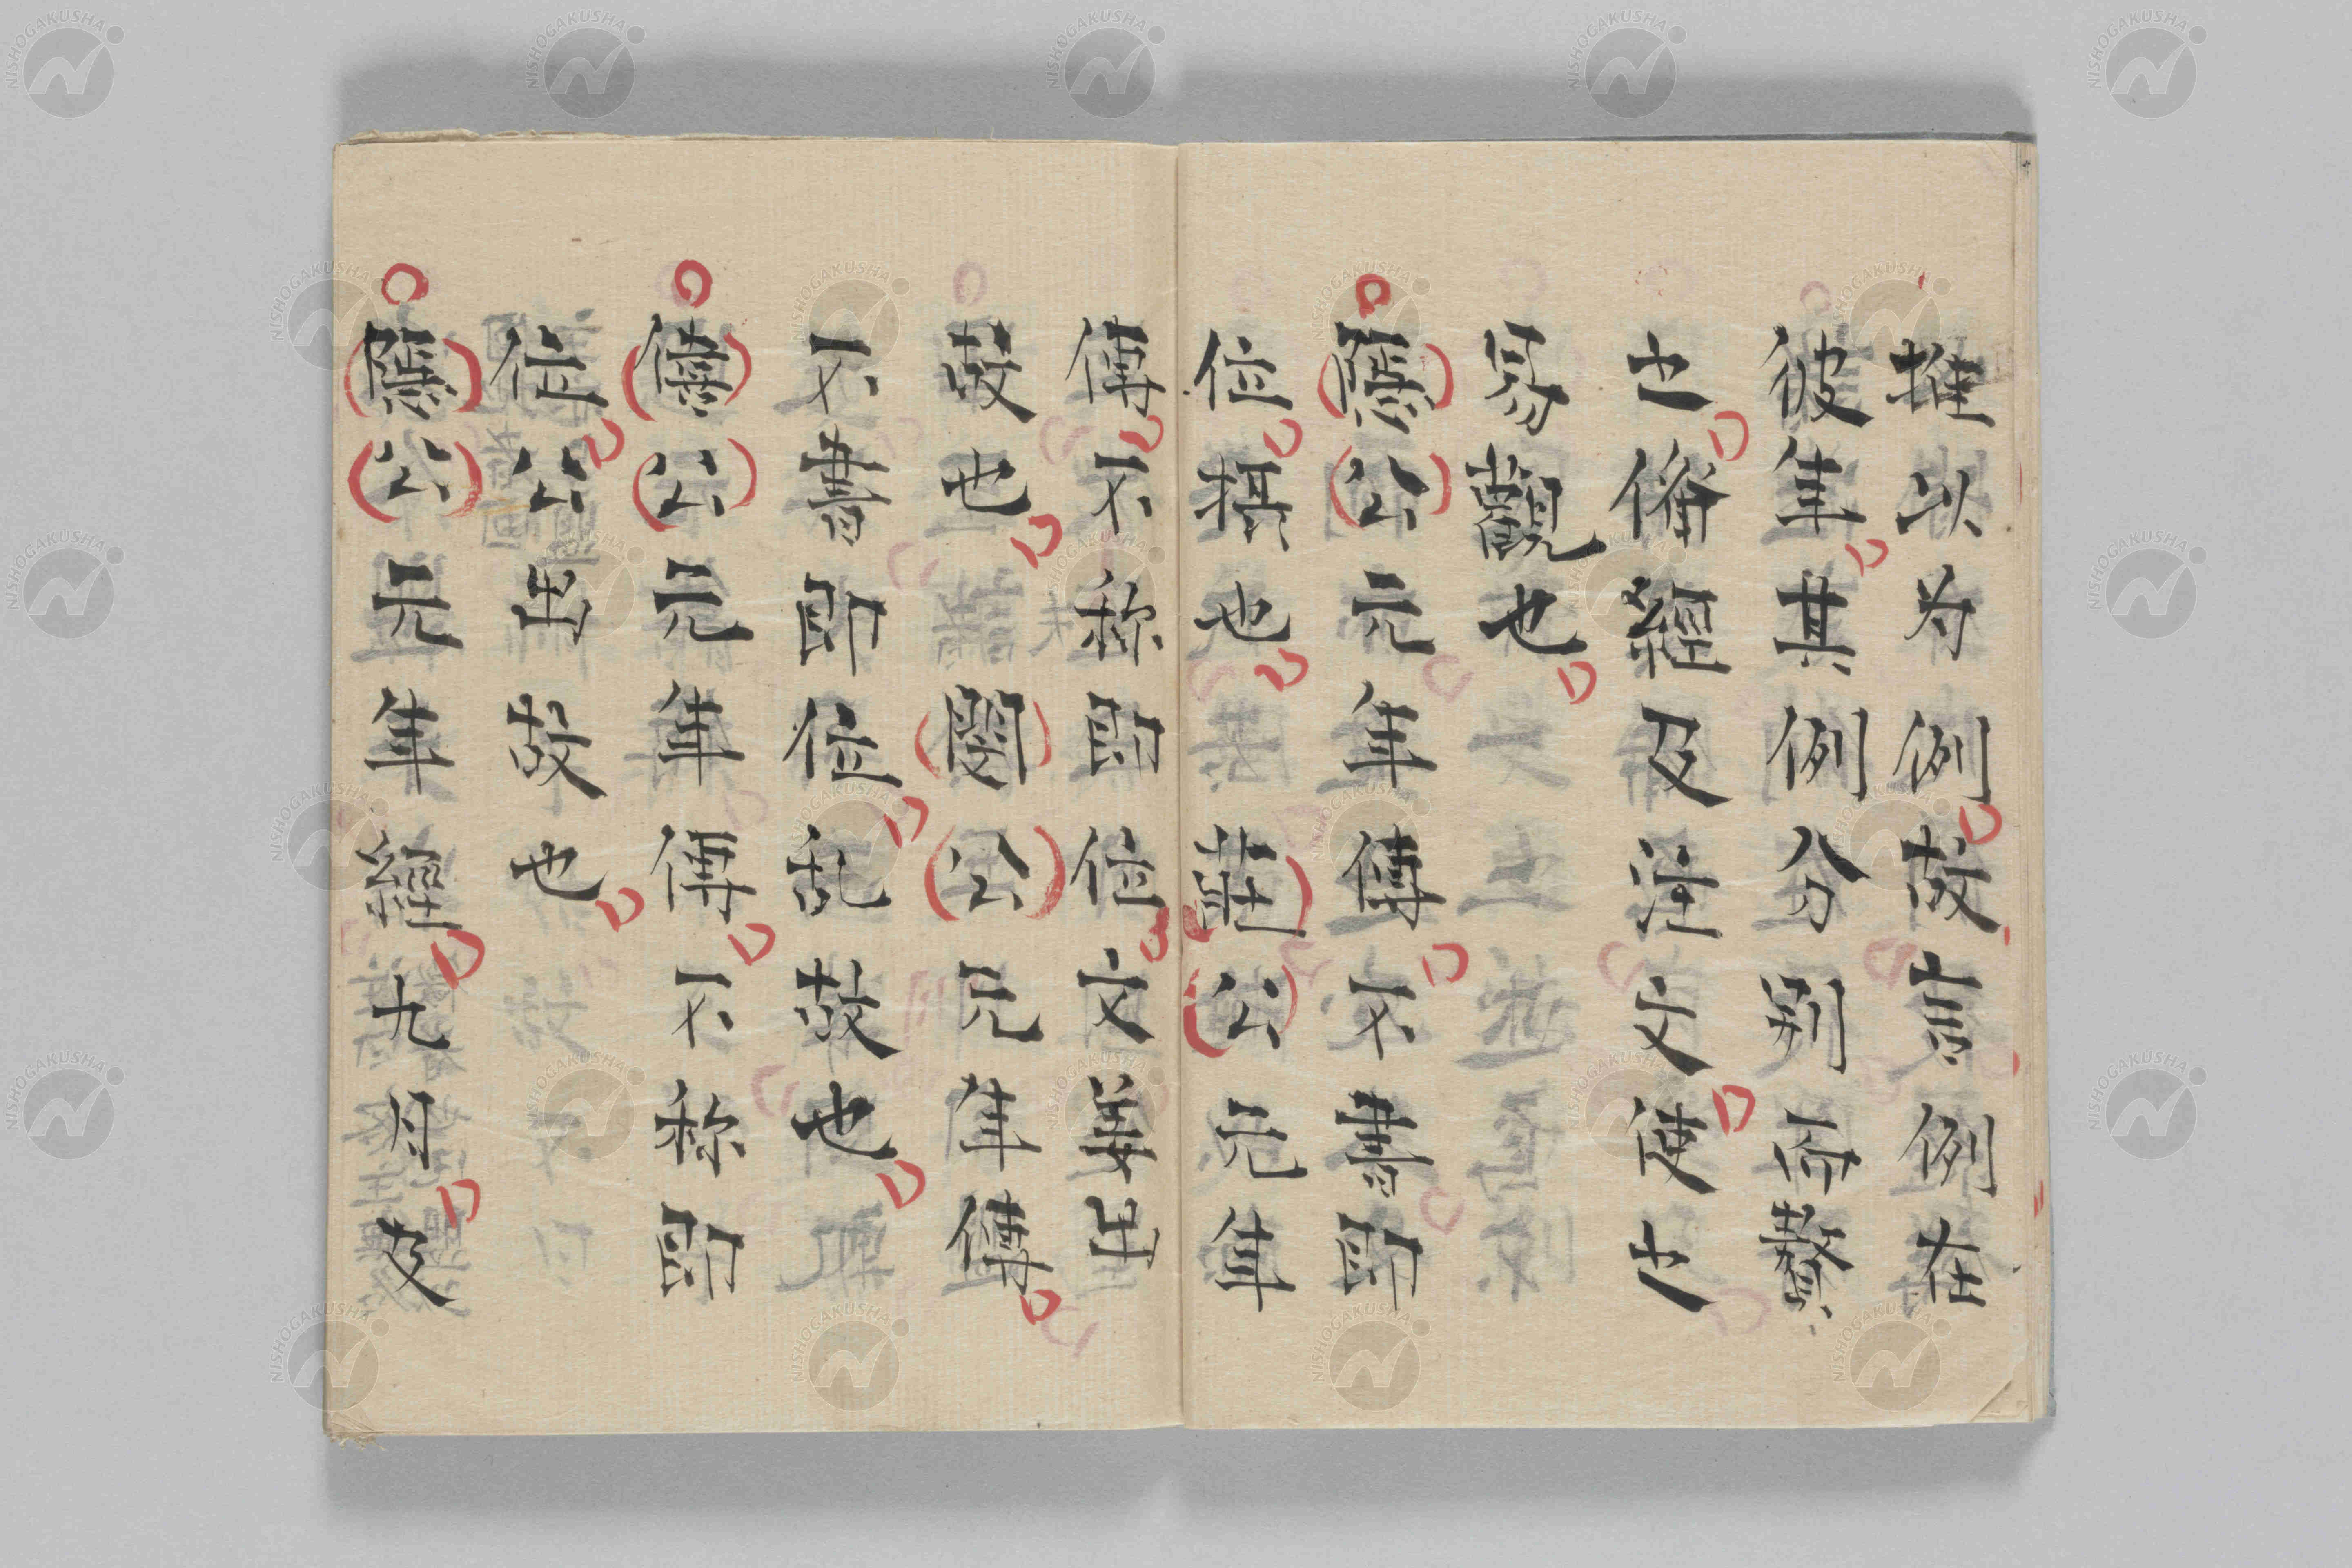 推以为例故言例在
彼年其例分別
及注文
觀也
隱公元年傳不書即
位攝也莊公元年
傳不称即位文姜出
故也閔公元年傳
不書即位乱故也
僖公元年傳不称即
位公出故也
隱公元年經九月及
NISHOGAKUSHA